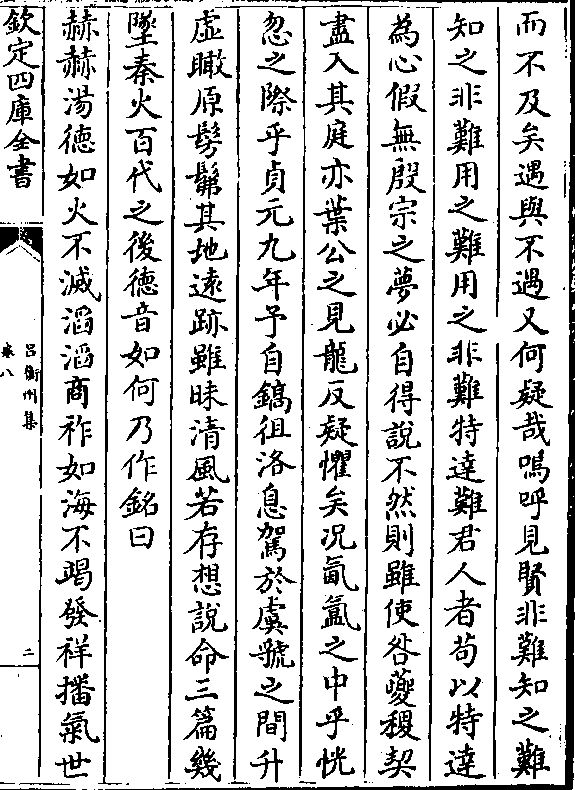 而不及矣遇與不遇又何疑哉嗚呼見賢非難知之難
知之非難用之難用之非難特達難君人者苟以特達
為心假無殷宗之夢必自得說不然則雖使咎夔稷契
盡入其庭亦葉公之見龍反疑懼矣况氤氲之中乎恍
忽之際乎貞元九年予自鎬徂洛息駕於虞虢之間升
虛瞰原髣髴其地遠跡雖昧清風若存想說命三篇幾
墜秦火百代之後德音如何乃作銘曰
赫赫湯德如火不滅滔滔商祚如海不竭發祥播氣世
欽定四庫全書
吕衡州集
卷八
二